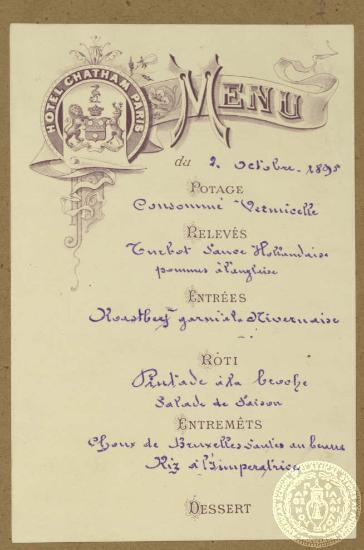 HOTEL CHATHAM PARIS
MENU
du 2 octobre 1895
POTAGE
Consommé Vermicelle
RELEVÉS
Turbot Sauce Hollandaise
pommes à l'anglaise
ENTRÉES
Roastbeef garni à la Nivernaise
RÔTI
Pintade à la broche
Salade de Saison
ENTREMÊTS
Choux de Bruxelles Sautés au beurre
Riz à l'impératrice
DESSERT